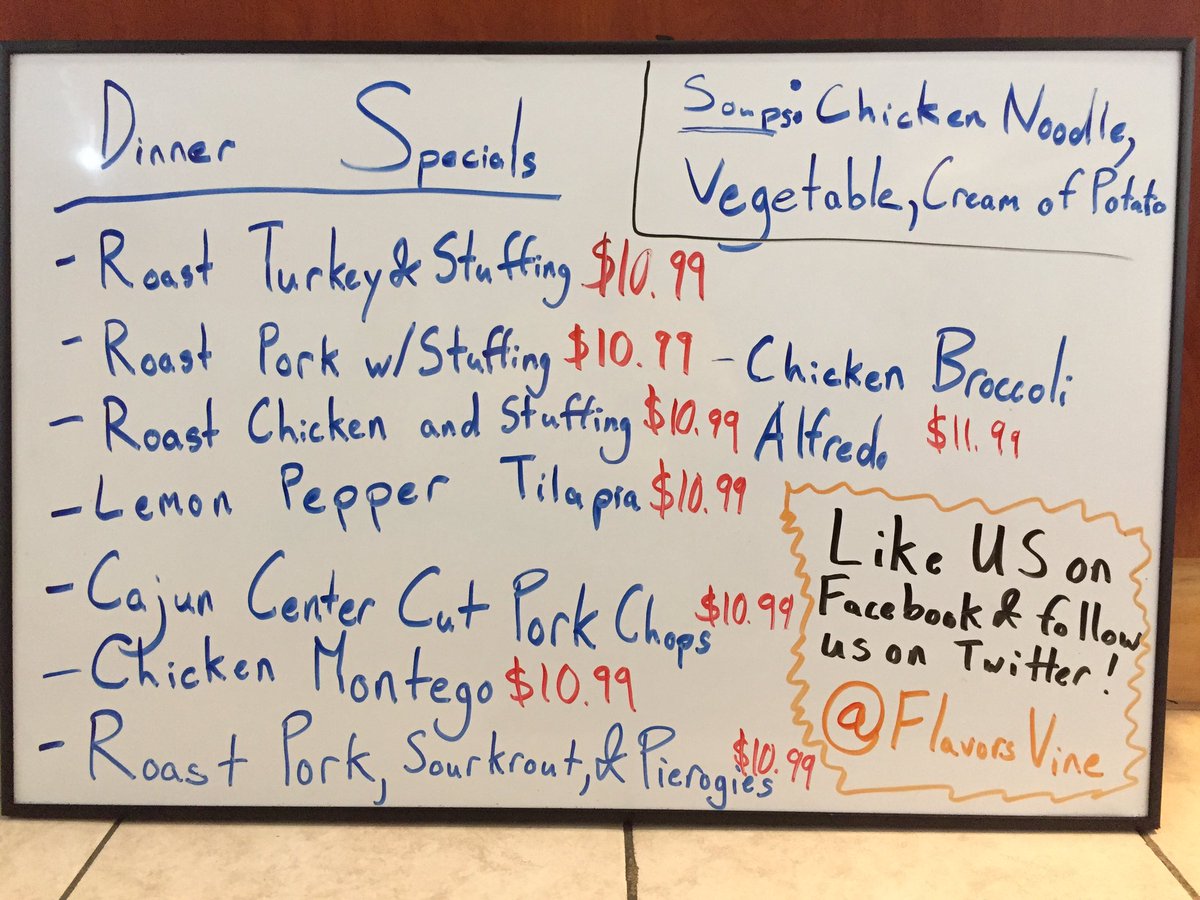 Dinner Specials
- Roast Turkey & Stuffing $10.99
- Roast Pork w/Stuffing $10.99
- Roast Chicken and Stuffing $10.99
- Lemon Pepper Tilapia $10.99
- Cajun Center Cut Pork Chops $10.99
- Chicken Montego $10.99
- Roast Pork, Sourkrout, & Pierogies $10.99
Soups: Chicken Noodle,
Vegetable, Cream of Potato
- Chicken Broccoli
Alfredo $11.99
Like US on
Facebook & follow
us on Twitter!
@FlavorsVine